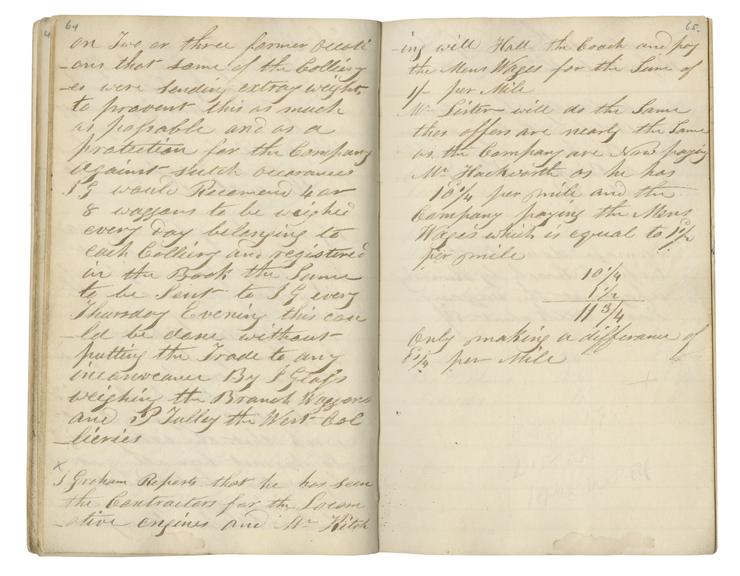 64
on Two or three former occati
-ons that some of the Collieri
-es were sending extray weight
to pravent this as much
as possable and as a
protection for the Company
against sutch occurances
J G would Recomend 4 or
8 waggons to be weighed
every day belonging to
each Colliery and registered
in the Book the Same
to be Sent to J G every
Thursday Evening this cou
-ld be done without
putting the Trade to any
By J Glass
weighing the Branch Waggons
and P Tulley the West Col
-lieries
x
J Graham Reports that he has seen
the Contractors for the Locom
-otive engines and Mr Kitch
65.
-ing will Hall the Coach and pay
the Mens Wages for the Sum of
1/- per Mile
Mr Lister will do the Same
thes offers are nearly the Same
as the Company are Now paying
Mr Hackworth as he has
10 1/4 per mile and the
Company paying the Mens
Wages which is equal to 1 1/2
per mile
10 1/4
1 1/2
11 3/4
Only making a differance of
1/4 per Mile